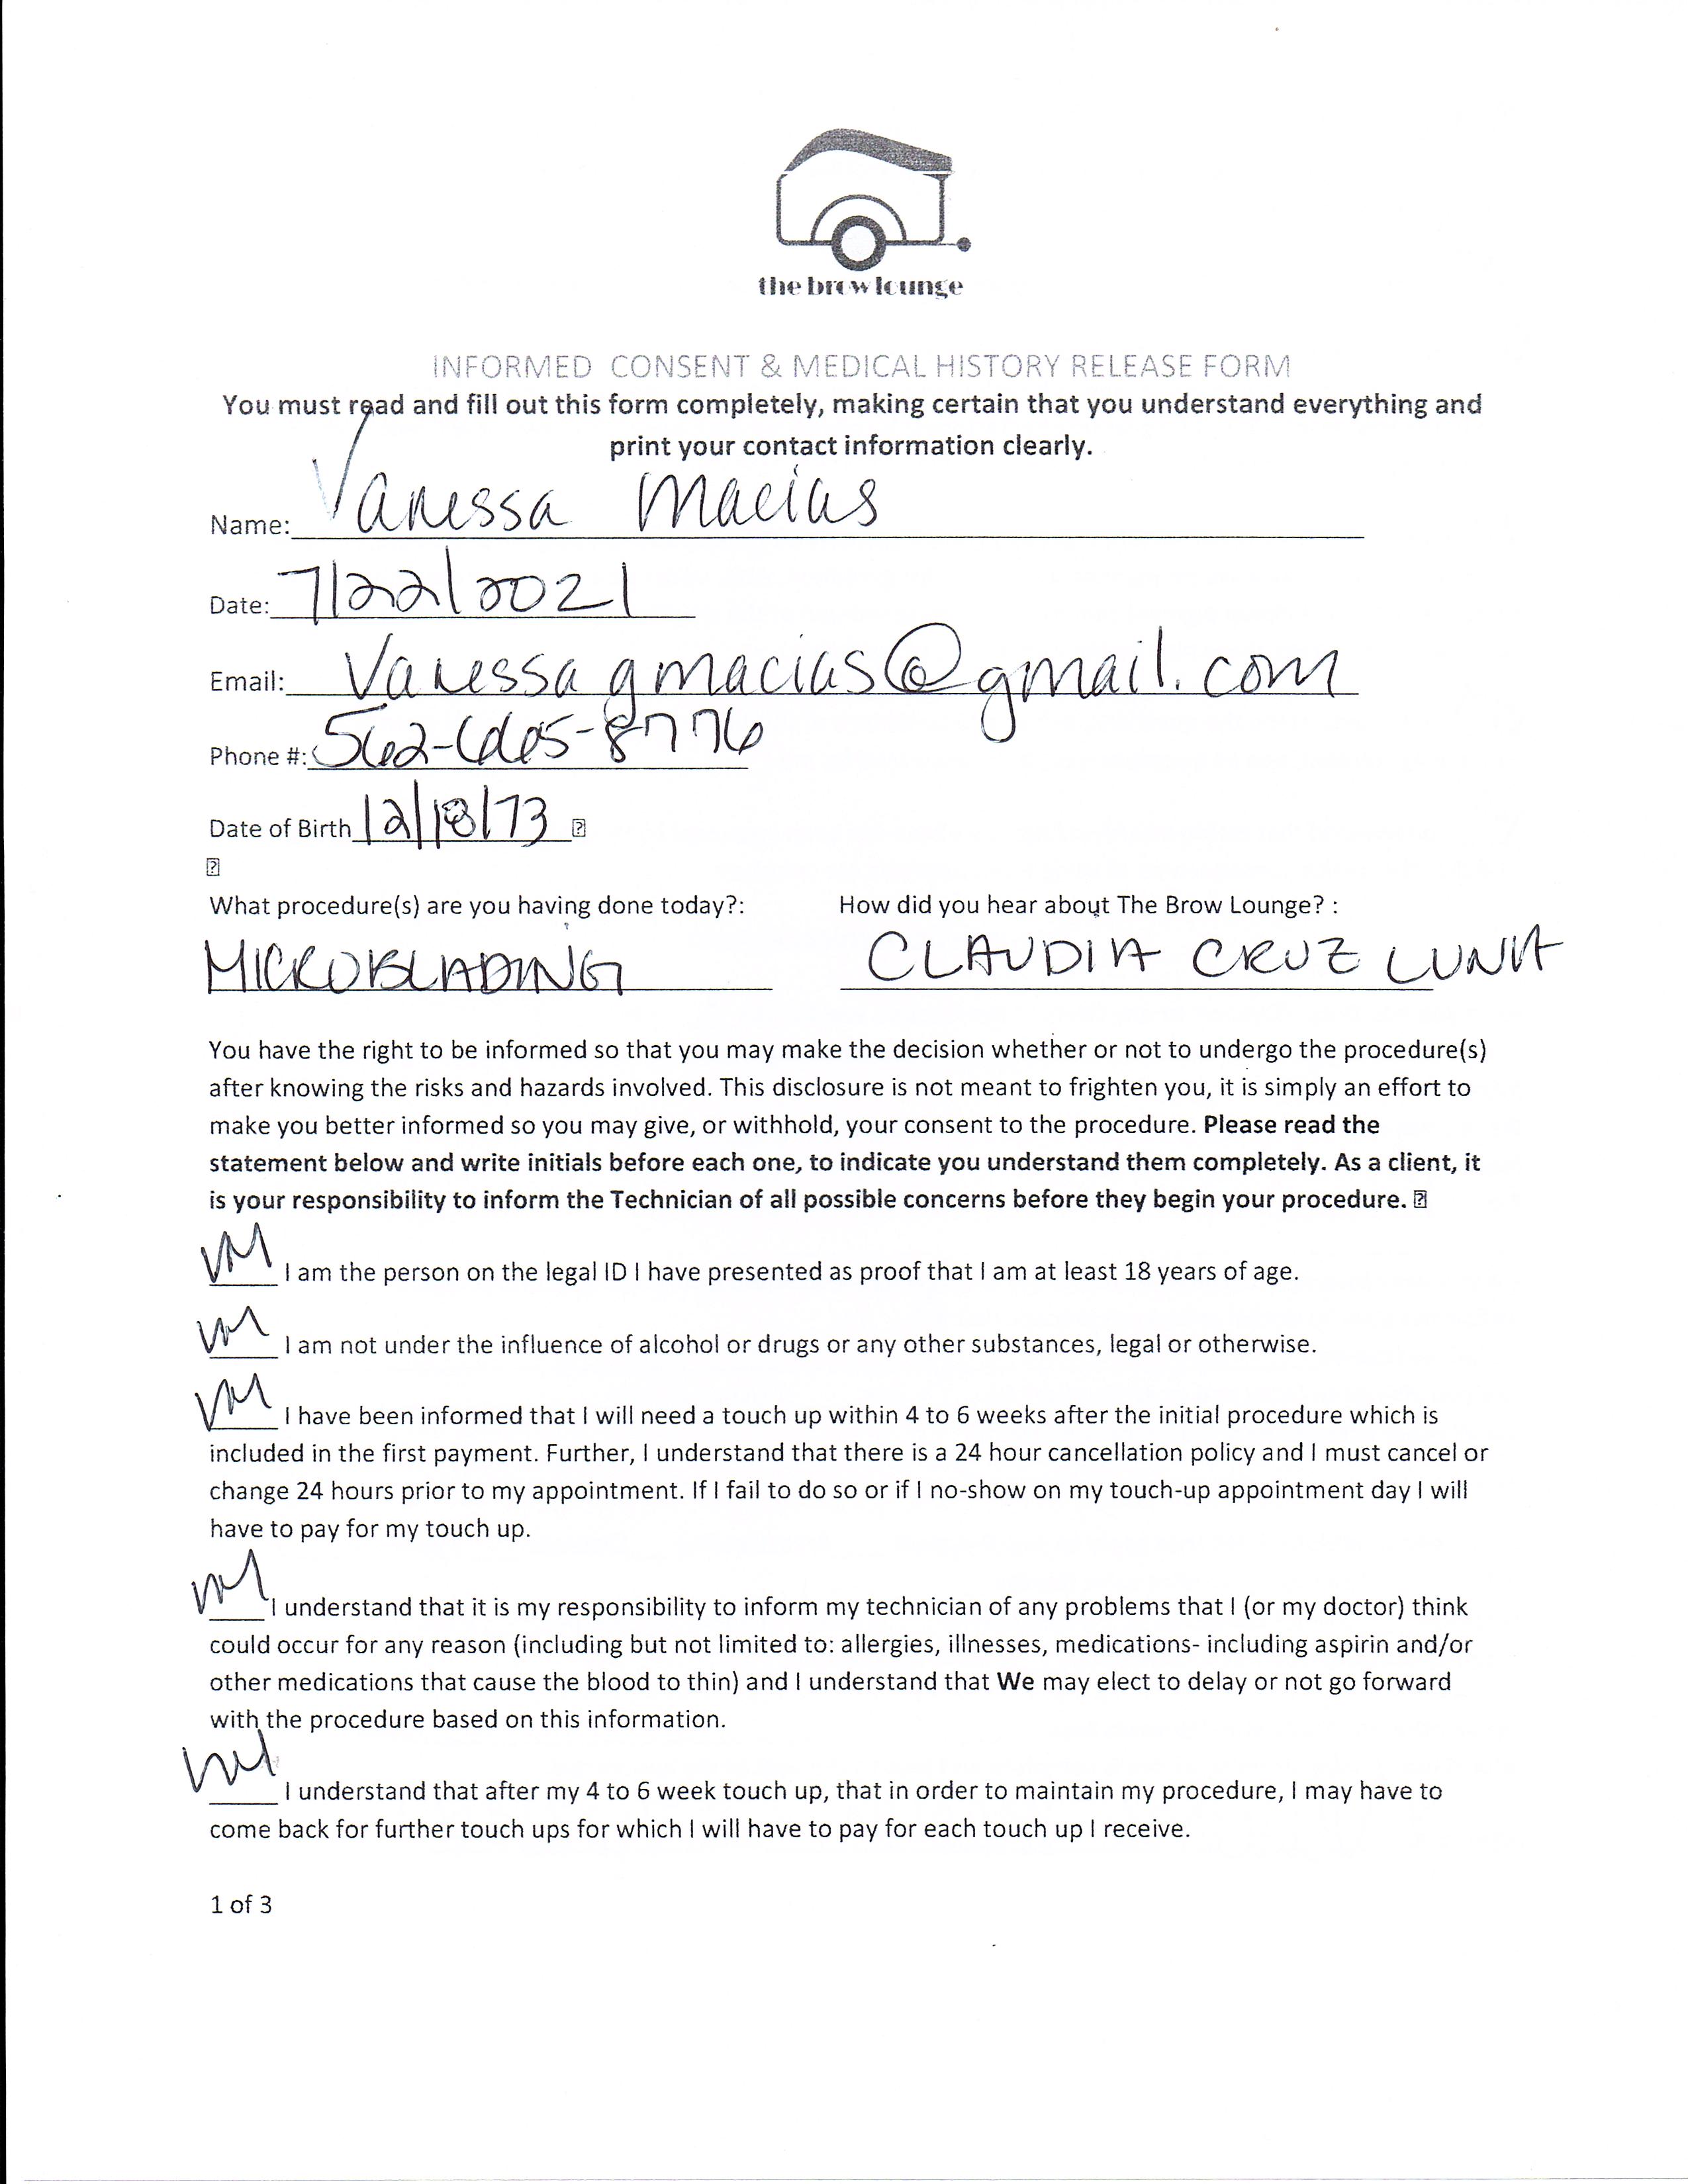 the brow lounge
INFORMED CONSENT & MEDICAL HISTORY RELEASE FORM
You must read and fill out this form completely, making certain that you understand everything and
print your contact information clearly.
Name: Vanessa Macias
Date: 7/22/2021
Email: Vanessagmacias@gmail.com
Phone #: 562-665-8776
Date of Birth 12/18/73
What procedure(s) are you having done today?: How did you hear about The Brow Lounge? :
MICROBLADING CLAUDIA CRUZ LUNA
You have the right to be informed so that you may make the decision whether or not to undergo the procedure(s)
after knowing the risks and hazards involved. This disclosure is not meant to frighten you, it is simply an effort to
make you better informed so you may give, or withhold, your consent to the procedure. Please read the
statement below and write initials before each one, to indicate you understand them completely. As a client, it
is your responsibility to inform the Technician of all possible concerns before they begin your procedure.
VM I am the person on the legal ID I have presented as proof that I am at least 18 years of age.
VM I am not under the influence of alcohol or drugs or any other substances, legal or otherwise.
VM I have been informed that I will need a touch up within 4 to 6 weeks after the initial procedure which is
included in the first payment. Further, I understand that there is a 24 hour cancellation policy and I must cancel or
change 24 hours prior to my appointment. If I fail to do so or if I no-show on my touch-up appointment day I will
have to pay for my touch up.
VM I understand that it is my responsibility to inform my technician of any problems that I (or my doctor) think
could occur for any reason (including but not limited to: allergies, illnesses, medications- including aspirin and/or
other medications that cause the blood to thin) and I understand that We may elect to delay or not go forward
with the procedure based on this information.
VM I understand that after my 4 to 6 week touch up, that in order to maintain my procedure, I may have to
come back for further touch ups for which I will have to pay for each touch up I receive.
1 of 3